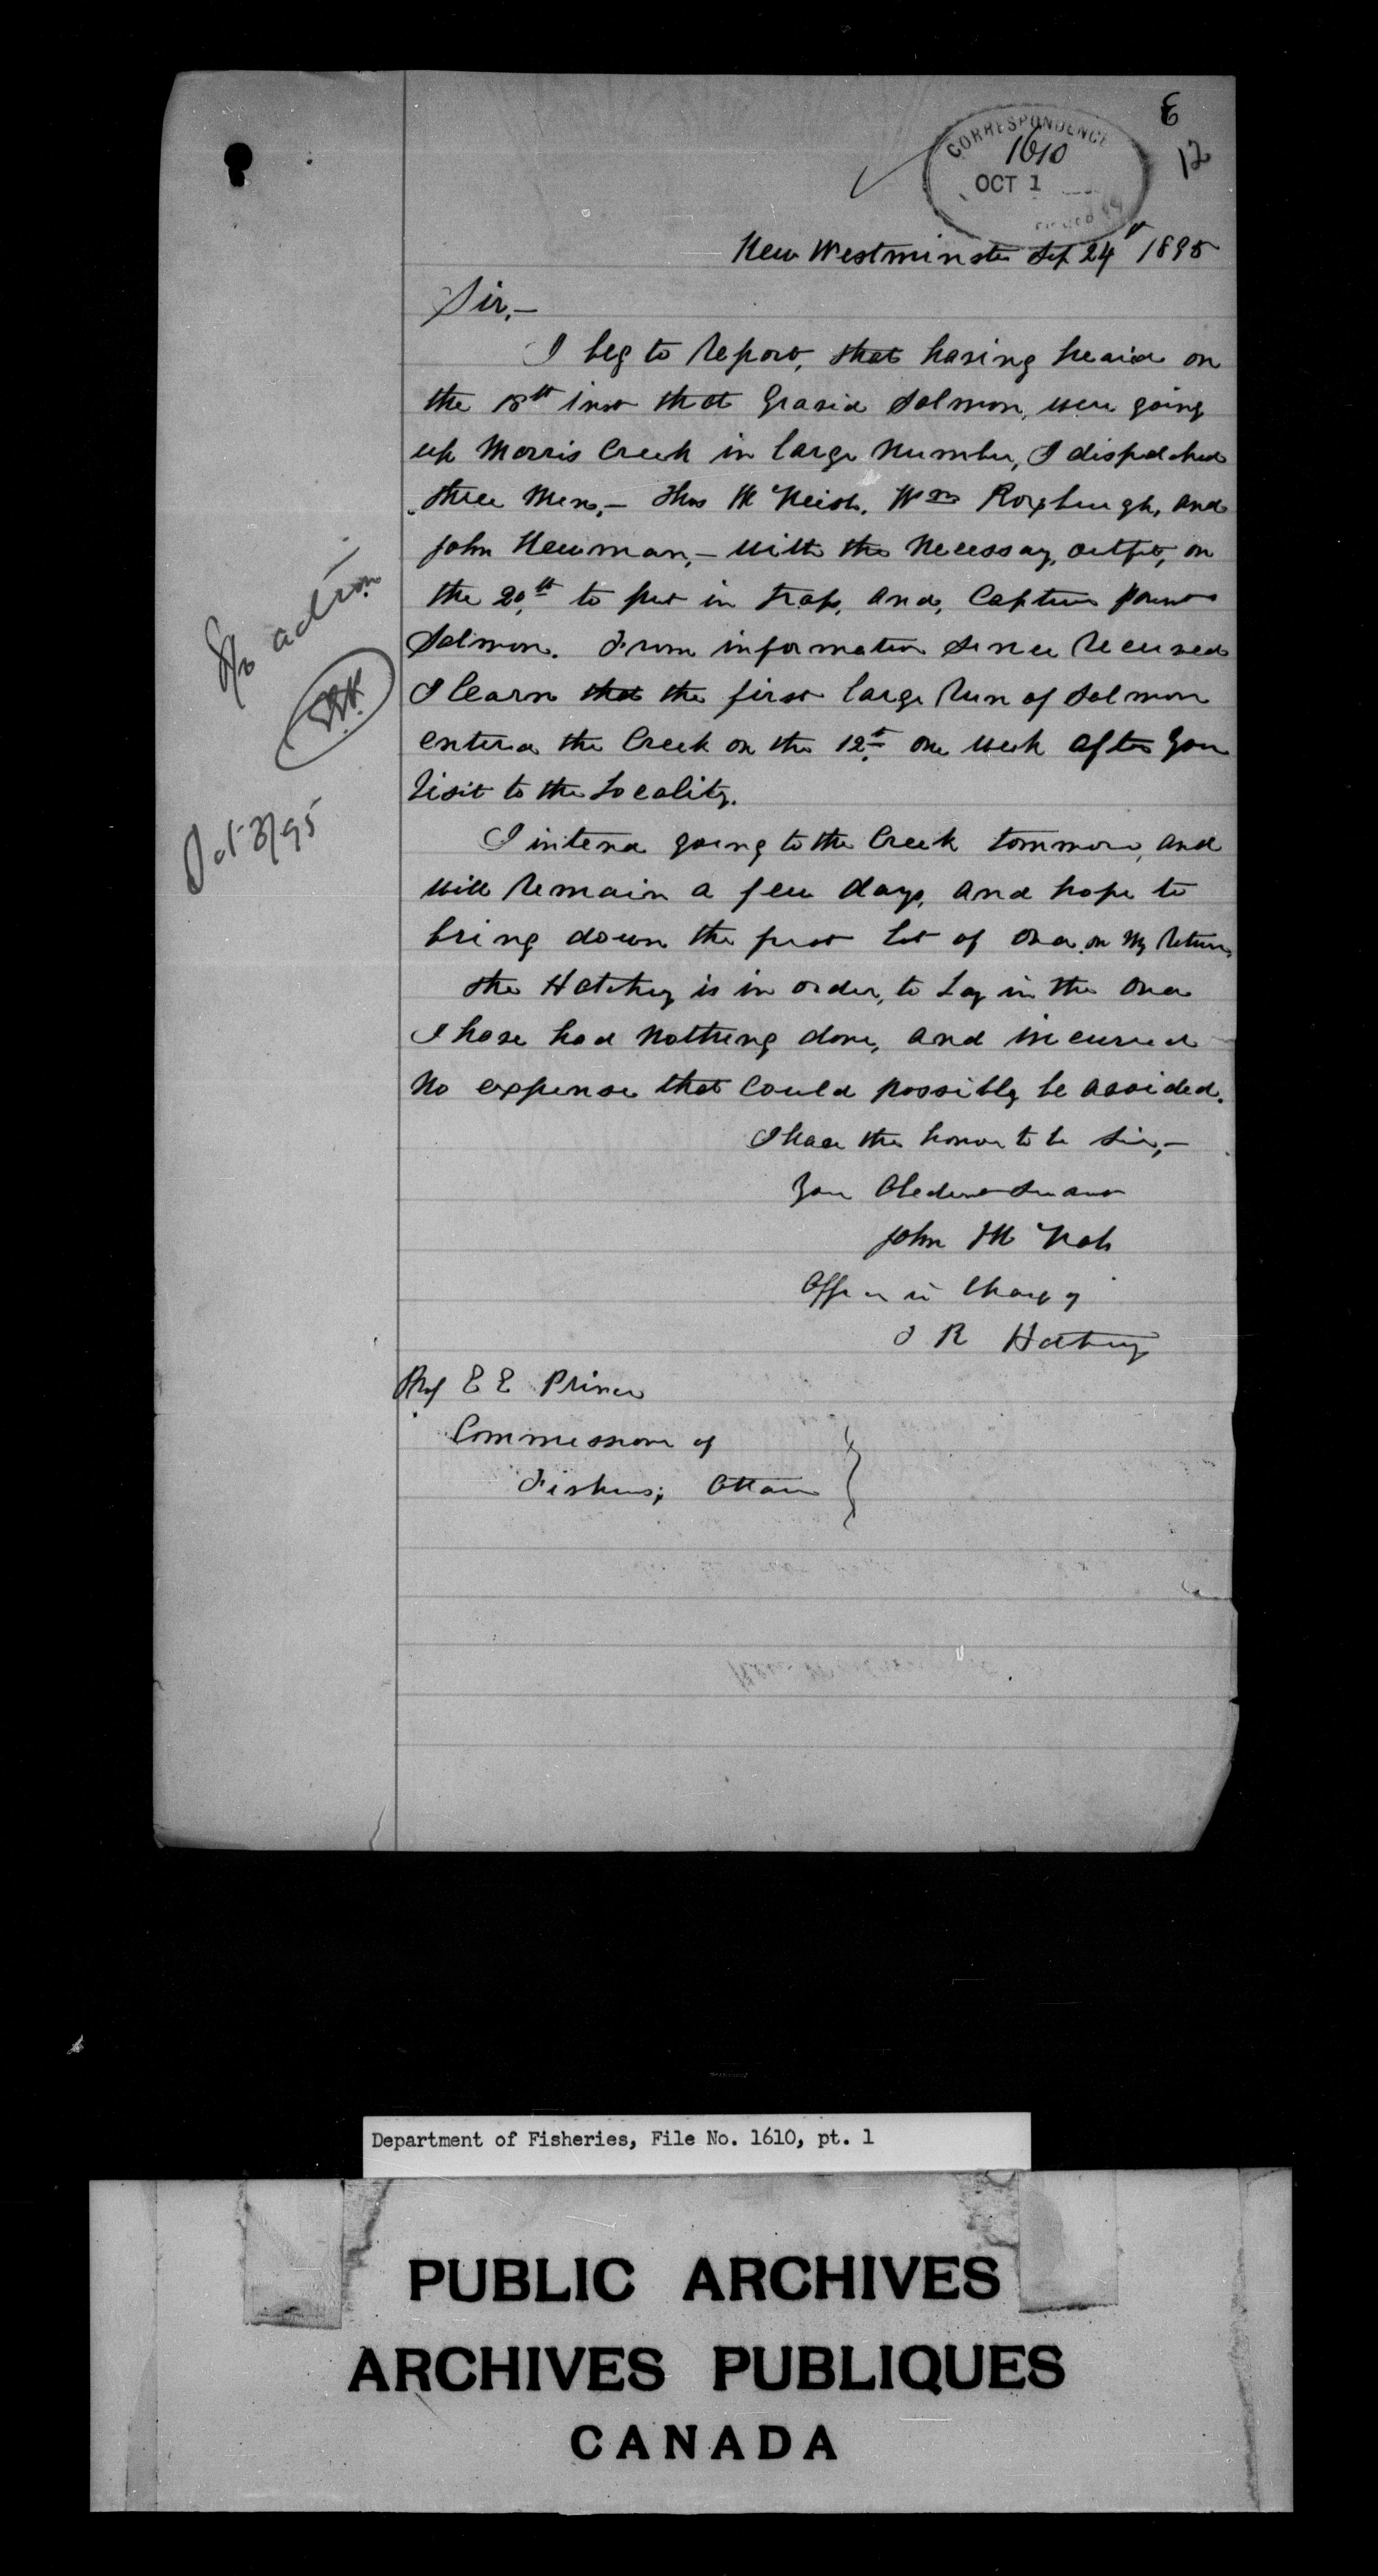 E
12
CORRESPONDENCE
1610
OCT 1
New Westminster Sep 24th 1895
Sir,—
I beg to report, that having heard on
the 18th inst that Gravid Salmon, were going
up Morris Creek in large number, I dispatched
three men,— Thos McNeish, Wm Roxburgh, and
John Newman,— with the necessary outfit, on
the 20th to put in trap, and, Capture parent
Salmon. From information since received
I learn that the first large run of Salmon
entered the Creek on the 12th one week after your
visit to the Locality.
I intend going to the Creek tommorow, and
will remain a few days, and hope to
bring down the first lot of ova, on my return,
The Hatchery is in order, to Lay in the ova
I have had nothing done, and incurred
no expense that could possibly be avoided.
I have the honor to be Sir,—
Your Obedient Servant
John McNab
Officer in Charge of
F R Hatchery
Prof E E Prince
Commissioner of
Fisheries, Ottawa
No action
Oct 3/95
Department of Fisheries, File No. 1610, pt. 1
PUBLIC ARCHIVES
ARCHIVES PUBLIQUES
CANADA